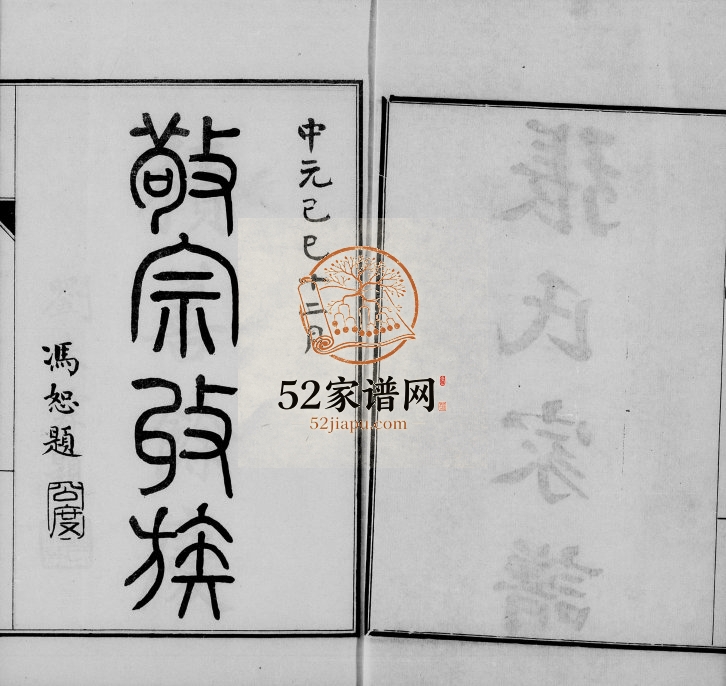 張氏家譜
中元己巳十二月
敬宗收族
馮恕題
公度
52家谱网
52jiapu.com